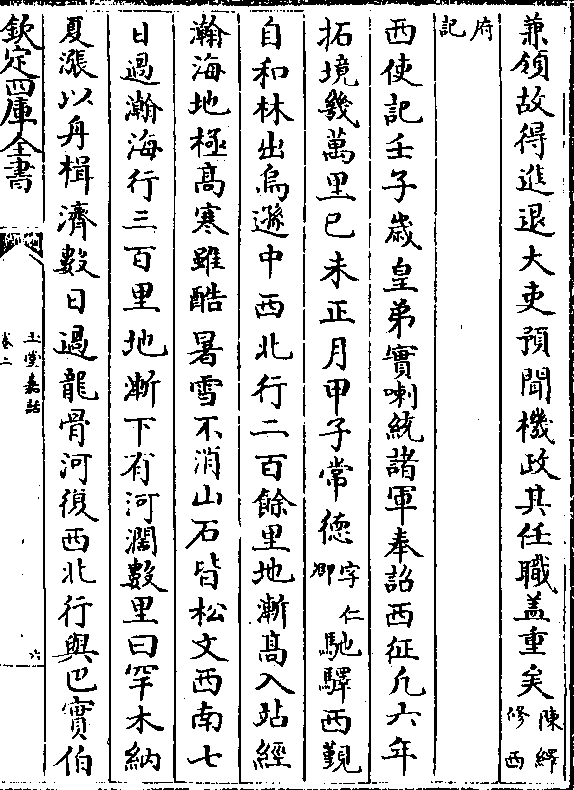 兼領故得進退大吏預聞機政其任職蓋重矣陳繹修西
府記
西使記壬子歲皇弟實喇統諸軍奉詔西征凡六年
拓境幾萬里已未正月甲子常德字仁卿馳驛西覲
自和林出烏遜中西北行二百餘里地漸髙入站經
瀚海地極髙寒雖酷暑雪不消山石皆松文西南七
日過瀚海行三百里地漸下有河濶數里曰罕木納
夏漲以舟楫濟數日過龍骨河復西北行與巴實伯
欽定四庫全書
玉堂嘉話
卷二
六